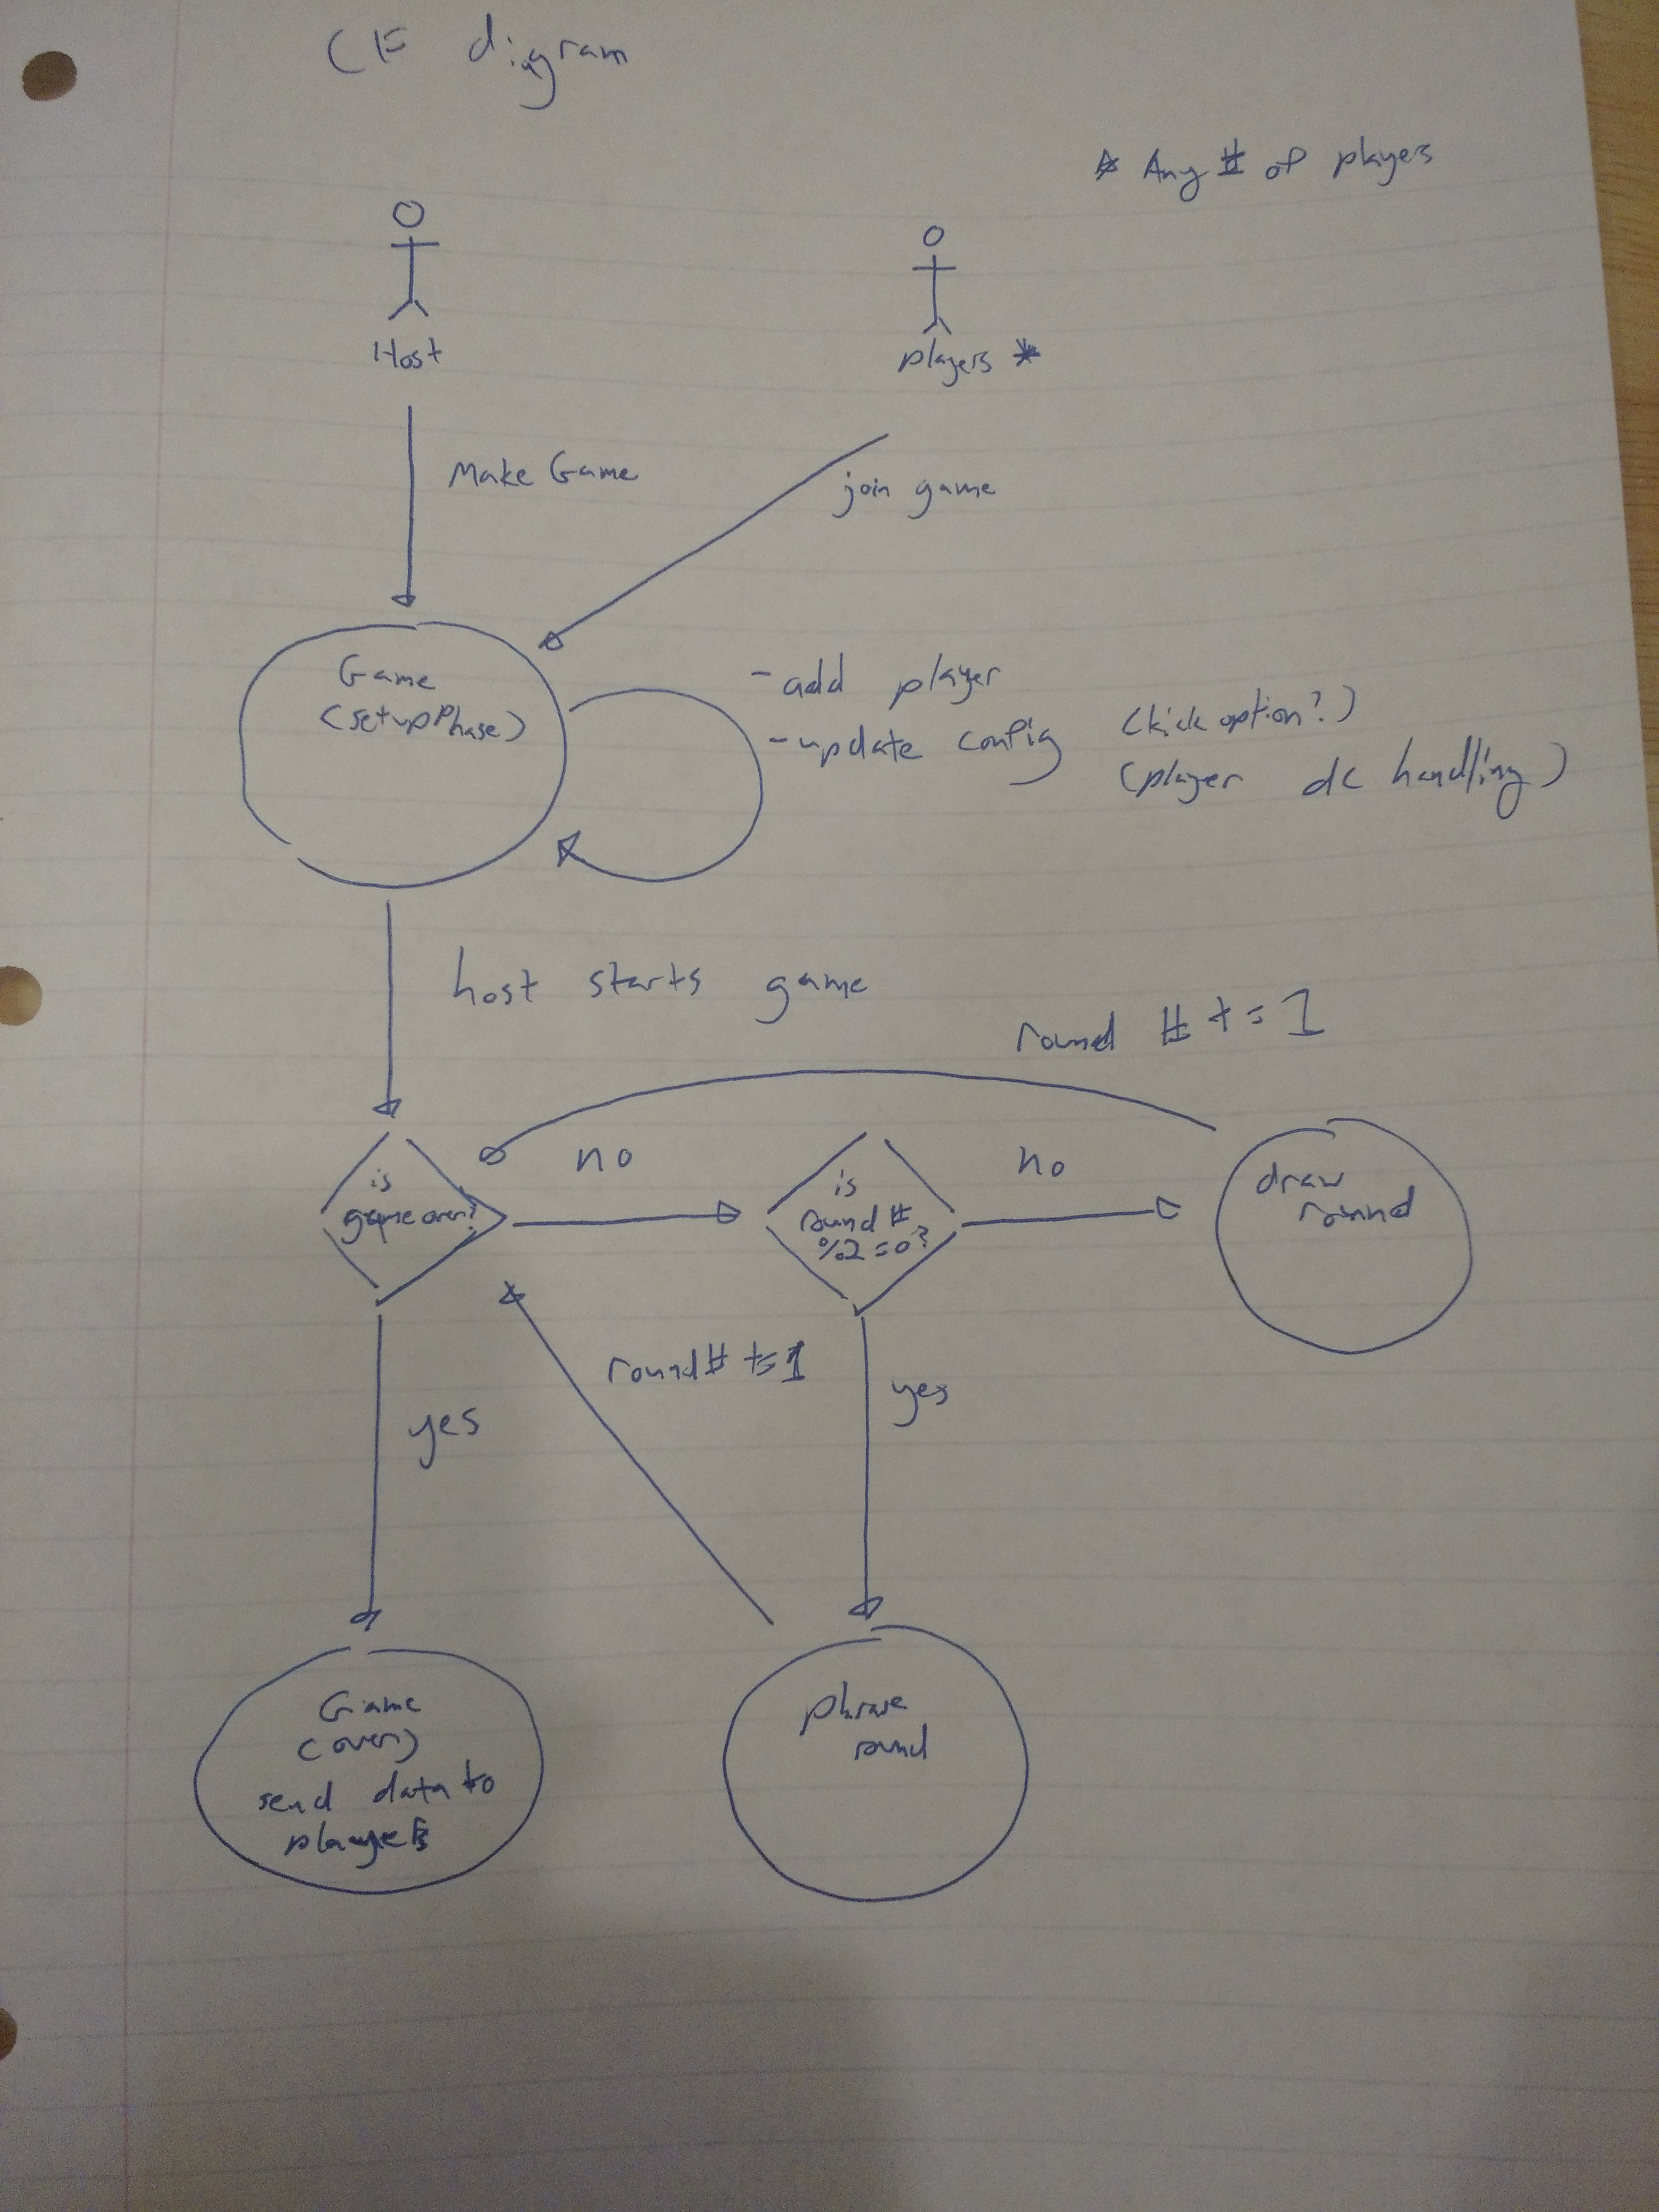 CF diagram
* Any # of players
Host
players *
Make Game
join game
Game
(setupPhase)
- add player
- update config
(kick option?)
(player dc handling)
host starts game
round # += 1
is
game over?
no
is
round #
%2 = 0?
no
draw
round
round # += 1
yes
yes
Game
(over)
send data to
players
phrase
round